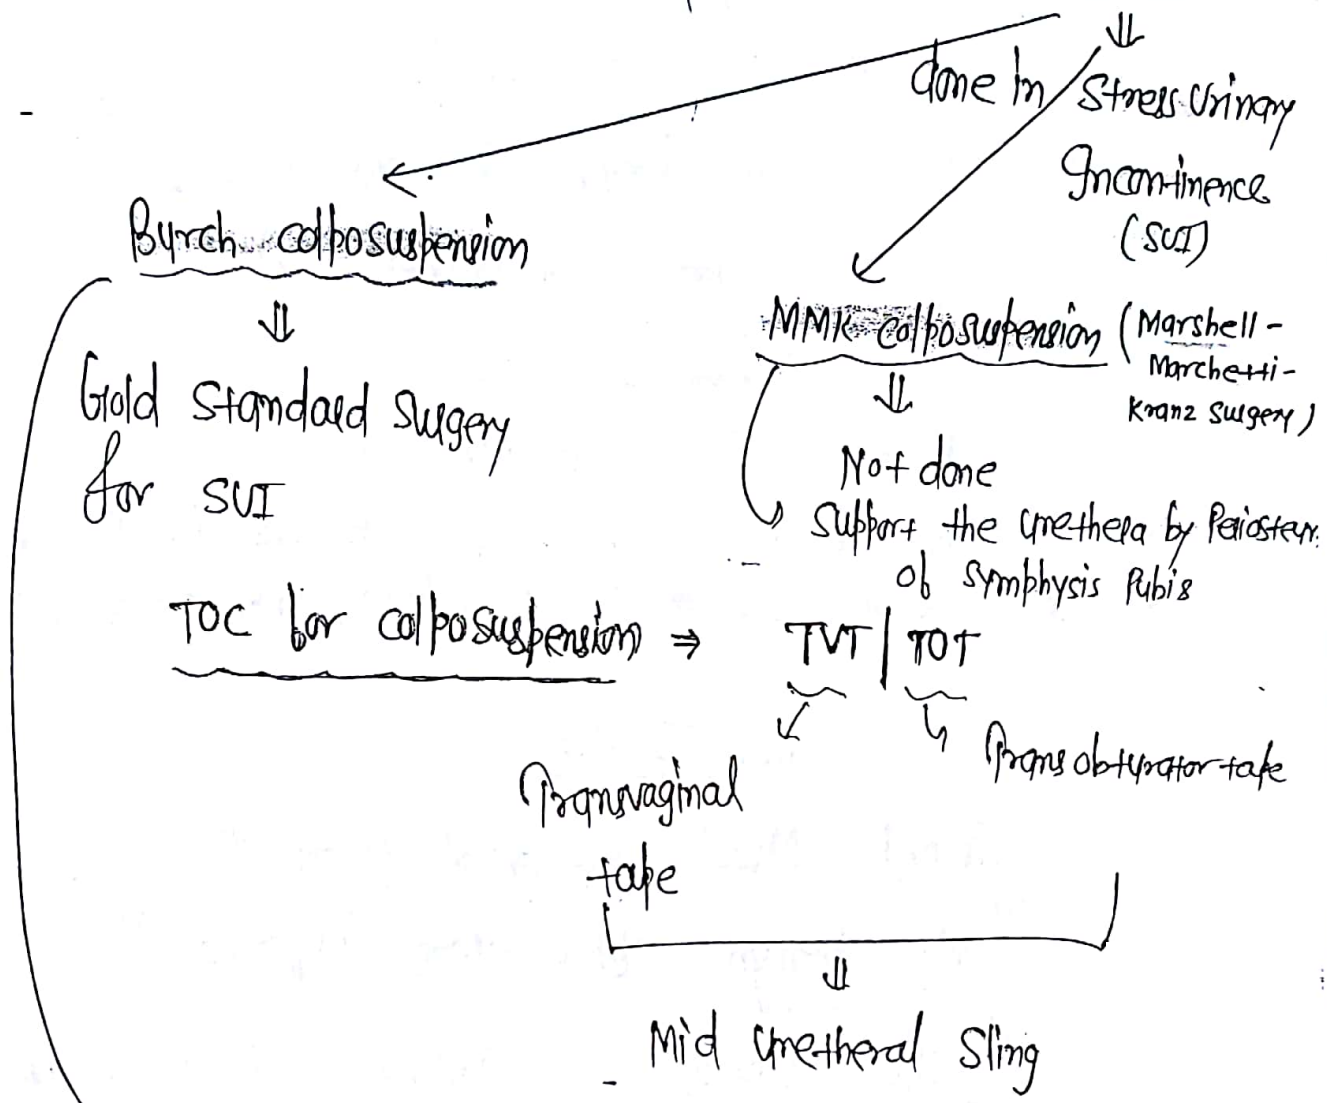 ⇓
done in Stress Urinary
Incontinence
(SUI)
Byrch colposuspension
⇓
Gold Standard Surgery
for SUI
MMK colposuspension (Marshell-
Marchetti-
Kranz Surgery)
⇓
Not done
Support the urethera by Periosteu.
of Symphysis Pubis
TOC for colposuspension ⇒ TVT | TOT
Transvaginal
tape
Trans obturator tape
⇓
Mid uretheral Sling